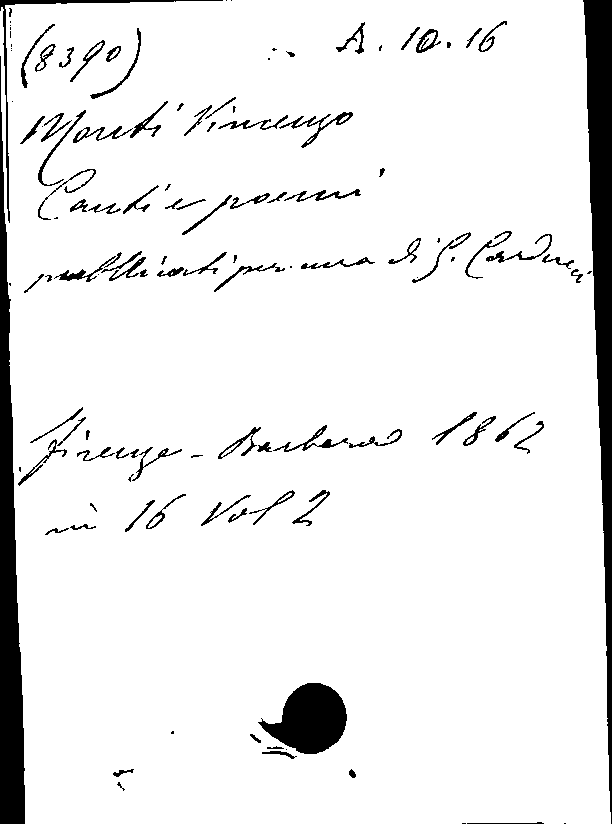 (8390) A. 10. 16
Monti Vincenzo
Canti e poemi
pubblicati per cura di G. Carducci
Firenze - Barbera 1862
in 16 Vol 2